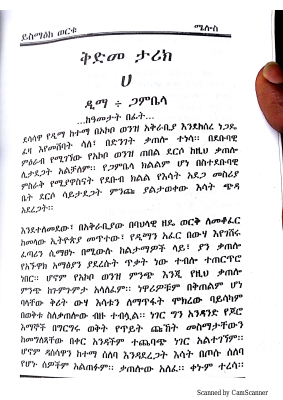 ይስማዕከ ወርቁ
ሜሎስ
ቅድመ ታሪክ
ሀ
ዲማ ÷ ጋምቤላ
...ከዓመታት በፊት...
ደሳሳዋ የዲማ ከተማ በአኮቦ ወንዝ አቅራቢያ እንደከሰረ ነጋዴ
ፈዛ እየመሸባት ሳለ፣ በድንገት ቃጠሎ ተነሳ። በደቡባዊ
ምዕራብ የሚገኘው የአኮቦ ወንዝ ጠበል ደርሶ ከዚህ ቃጠሎ
ሊታደጋት አልቻለም። የጋምቤላ ክልልም ሆነ በስተደቡባዊ
ምስራቅ የሚያዋስናት የደቡብ ክልል የእሳት አደጋ መስሪያ
ቤት ደርሶ ሳይታደጋት ምንጩ ያልታወቀው እሳት ጭዳ
አደረጋት።
እንደተለመደው፣ በአቅራቢያው በባህላዊ ዘዴ ወርቅ ለመቆፈር
ከመላው ኢትዮጵያ መጥተው፣ የዲማን አፈር በውሃ እየገሸሩ
ፈጣሪን ሲማፀኑ በሚውሉ ከልታማዎች ላይ፣ ያን ቃጠሎ
የአኙዋክ አማፅያን ያደረሱት ጥቃት ነው ተብሎ ተጠርጥሮ
ነበር። ሆኖም የአኮቦ ወንዝ ምንጭ እንጂ የዚህ ቃጠሎ
ምንጭ ከጉምጉምታ አላለፈም። ነዋሪዎቹም በቅጠልም ሆነ
ባላቸው ቅሪት ውሃ እሳቱን ለማጥፋት ሞክረው ባይሳካም
በወቅቱ ስለቃጠሎው ብዙ ተብሏል። ነገር ግን አንዳንድ የጆሮ
እማኞች በግርግሩ ወቅት የጥይት ጩኸት መስማታቸውን
ከመግለጻቸው በቀር አንዳችም ተጨባጭ ነገር አልተገኘም።
ሆኖም ዳስሳዋን ከተማ ሰለባ እንዳደረጋት እሳት በጦሱ ሰለባ
የሆኑ ሰዎችም አልጠፉም። ቃጠሎው አለፈ። ቀኑም ተረሳ።
Scanned by CamScanner